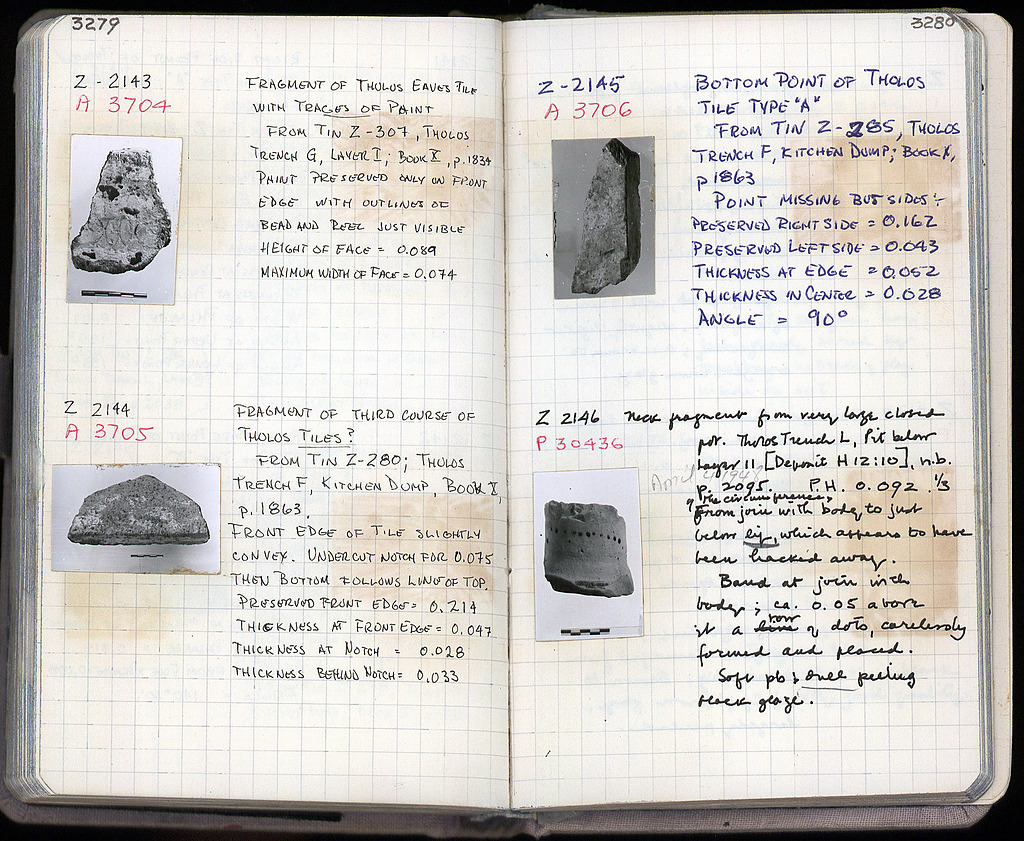 3279
Z - 2143
A 3704
FRAGMENT OF THOLOS EAVES TILE
WITH TRACES OF PAINT
FROM TIN Z-307, THOLOS
TRENCH G, LAYER I; BOOK X, p.1834
PAINT PRESERVED ONLY ON FRONT
EDGE WITH OUTLINES OF
BEAD AND REEL JUST VISIBLE
HEIGHT OF FACE = 0.089
MAXIMUM WIDTH OF FACE = 0.074
Z 2144
A 3705
FRAGMENT OF THIRD COURSE OF
THOLOS TILES?
FROM TIN Z-280; THOLOS
TRENCH F, KITCHEN DUMP, BOOK X,
p. 1863.
FRONT EDGE OF TILE SLIGHTLY
CONVEX. UNDERCUT NOTCH FOR 0.075
THEN BOTTOM FOLLOWS LINE OF TOP.
PRESERVED FRONT EDGE = 0.214
THICKNESS AT FRONT EDGE = 0.047
THICKNESS AT NOTCH = 0.028
THICKNESS BEHIND NOTCH = 0.033
3280
Z-2145
A 3706
BOTTOM POINT OF THOLOS
TILE TYPE "A"
FROM TIN Z-285, THOLOS
TRENCH F, KITCHEN DUMP; BOOK X,
p 1863
POINT MISSING BUT SIDES:-
PRESERVED RIGHT SIDE = 0.162
PRESERVED LEFT SIDE = 0.043
THICKNESS AT EDGE = 0.052
THICKNESS IN CENTER = 0.028
ANGLE = 90°
Z 2146
P 30436
Neck fragment from very large closed
pot. Tholos Trench L, Pit below
Layer 11 [Deposit H 12:10], n.b.
p. 2095. P.H. 0.092 . 1/3
of the circumference,
From join with body to just
below lip, which appears to have
been hacked away.
Band at join with
body; ca. 0.05 above
it a line row of dots, carelessly
formed and placed.
Soft pb; dull peeling
black glaze.
April 4, 1947